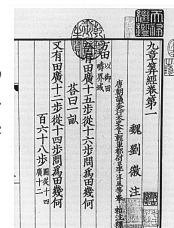 九章算經卷第一
魏 劉 徽 注
唐朝議大夫行太史令上輕車都尉臣李淳風等奉 敕注釋
方田 以御田疇界域
今有田廣十五步從十六步問為田幾何
荅曰一畝
又有田廣十二步從十四步問為田幾何
百六十八步 圖從十四廣十二